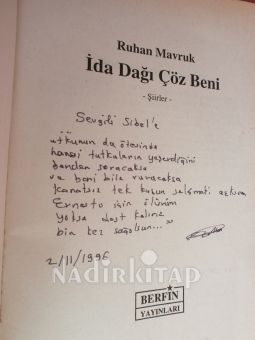 Ruhan Mavruk
İda Dağı Çöz Beni
- Şiirler -
Sevgili Sibel'e
utkunun da ötesinde
hangi tutkuların yeşerdiğini
benden soracaksa
ve beni bile vuracaksa
Kanatsız tek kuşun
Ernesto için ölünüm
yoksa dost kalırız
bin kez sağolsun..."
2/11/1996
NADİRKİTAP
BERFİN
YAYINLARI